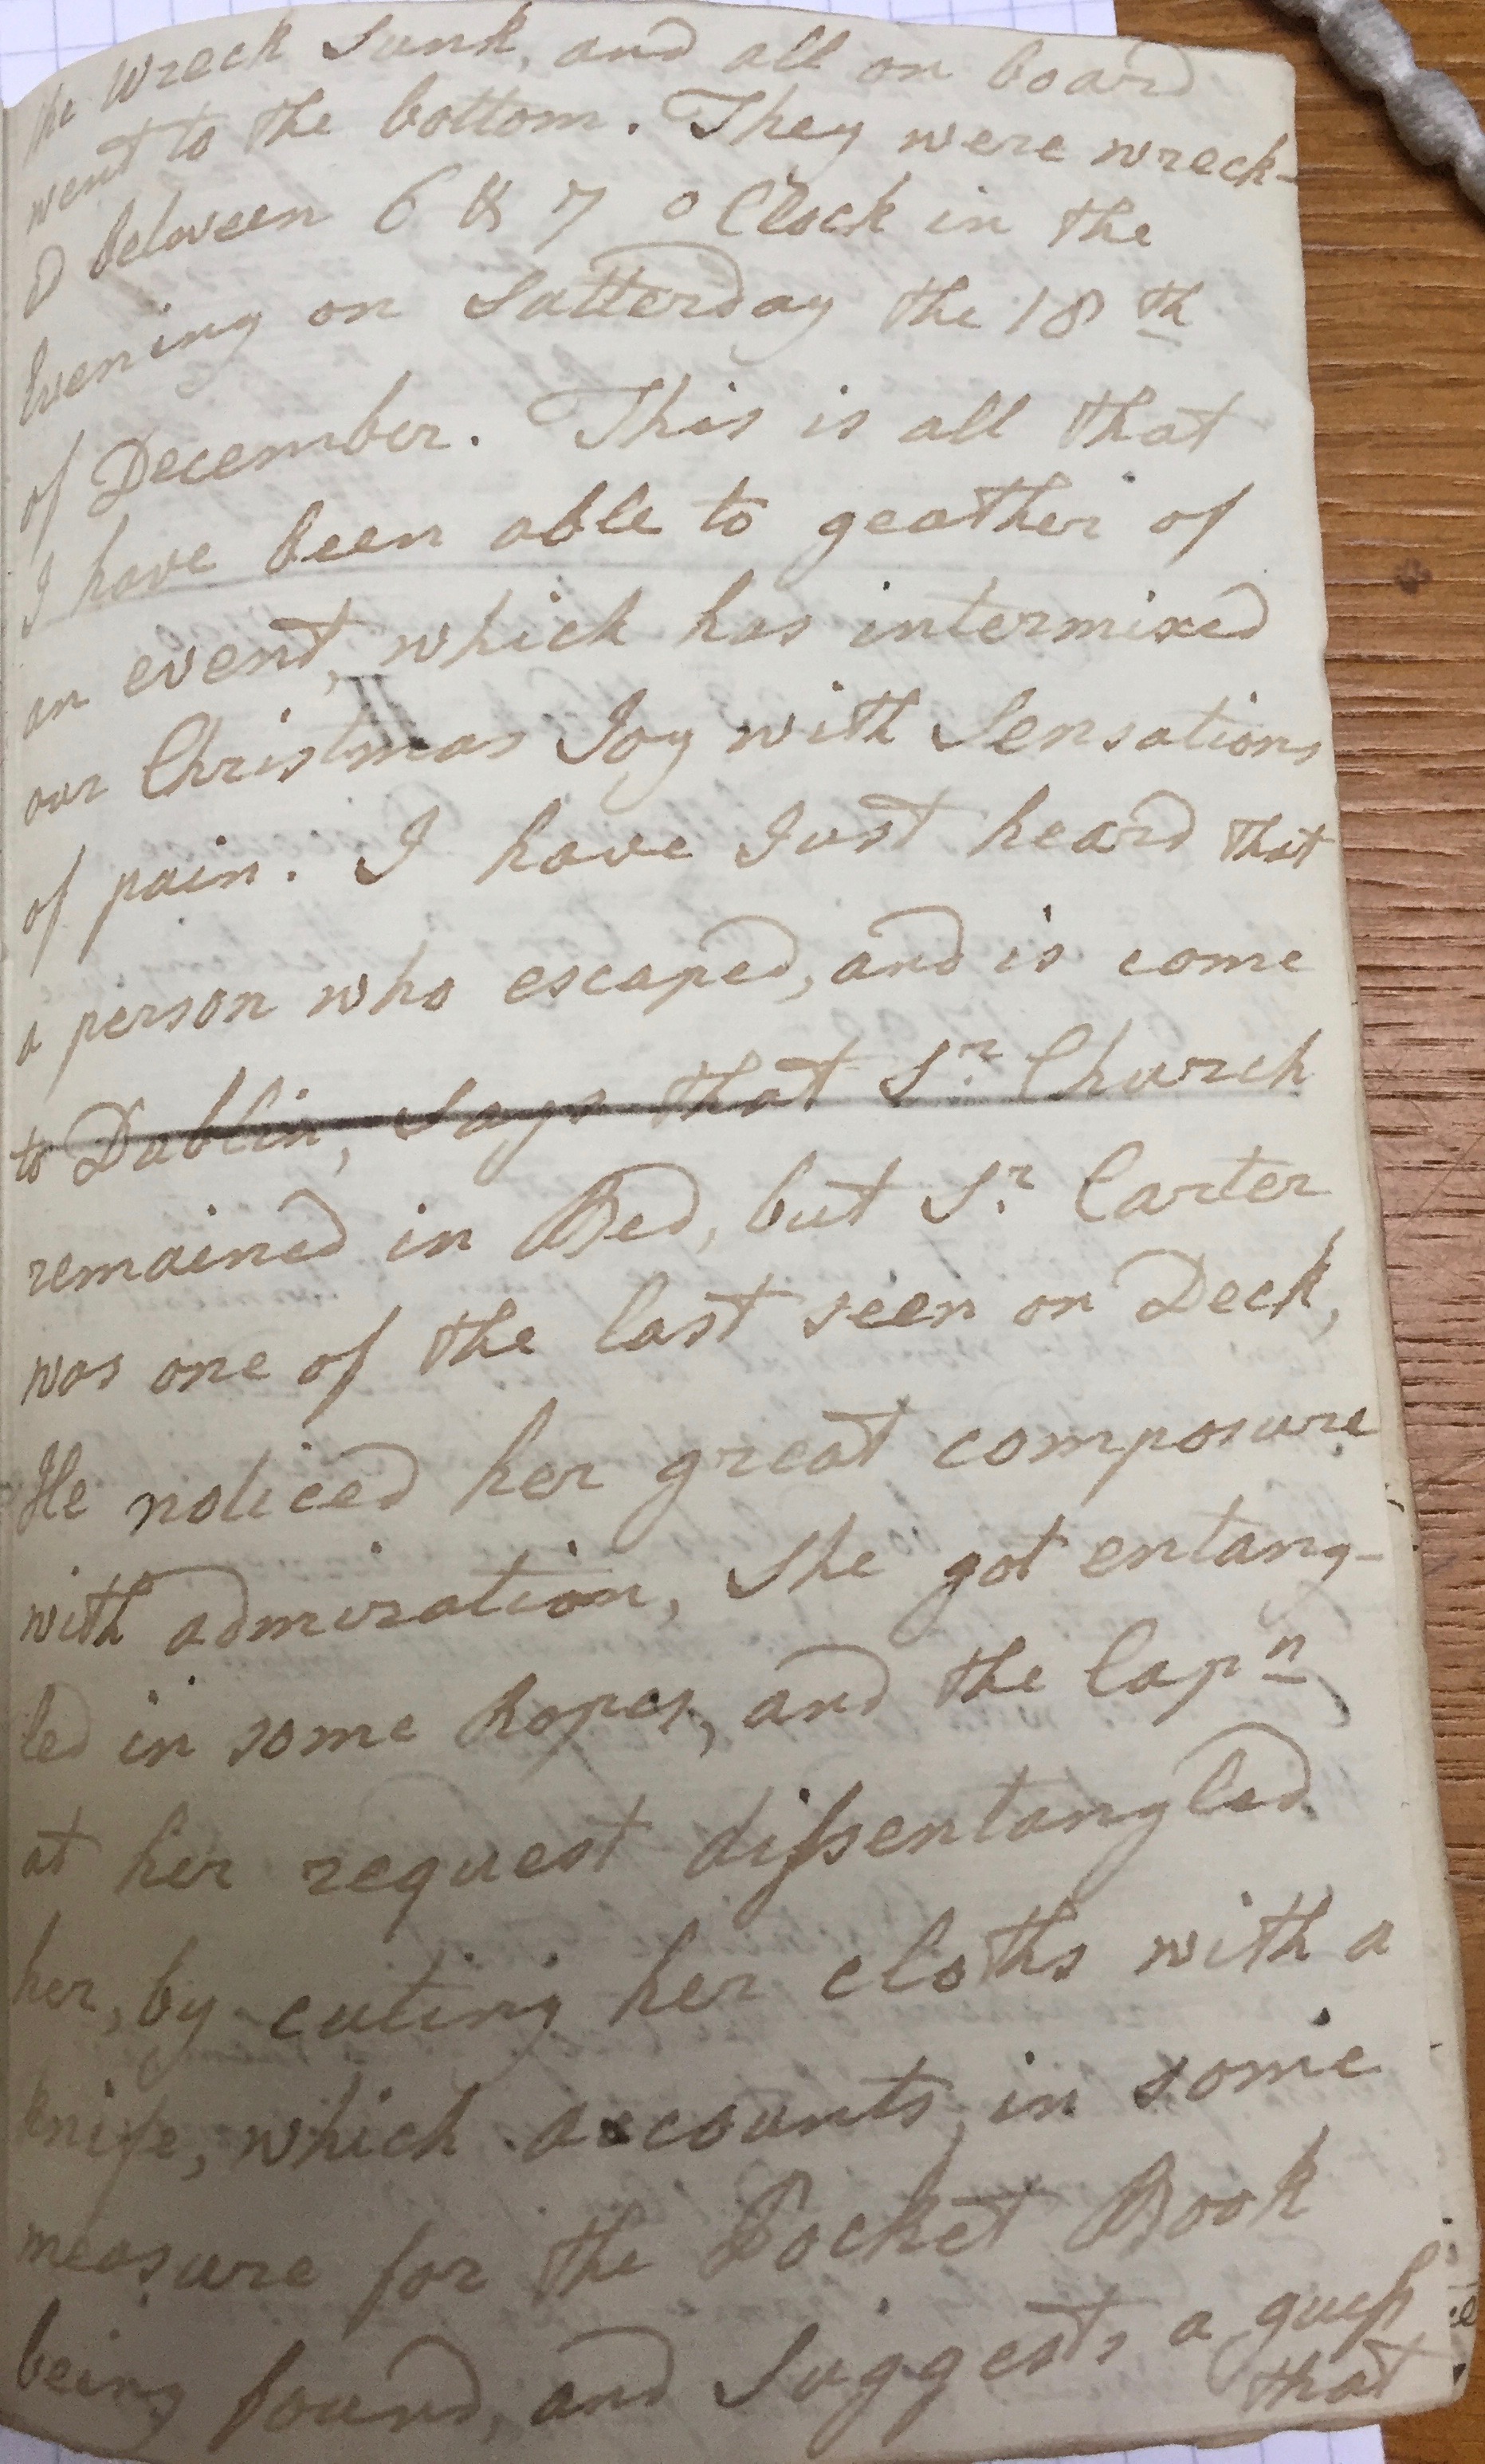 the Wreck Sunk, and all on board
went to the bottom. They were wreck-
d between 6 & 7 o Clock in the
Evening on Satterday the 18th
of December. This is all that
I have been able to geather of
an event, which has intermixed
our Christmas Joy with Sensations
of pain. I have Just heard that
a person who escaped, and is come
to Dublin, Says that Sr. Church
remained in Bed, but Sr. Carter
was one of the last seen on Deck,
He noticed her great composure
with admiration, She got entang-
led in some Ropes, and the Capn
at her request diſsentangled
her, by cuting her cloths with a
knife, which accounts in some
measure for the Pocket Book
being found, and Suggests a gueſs
that